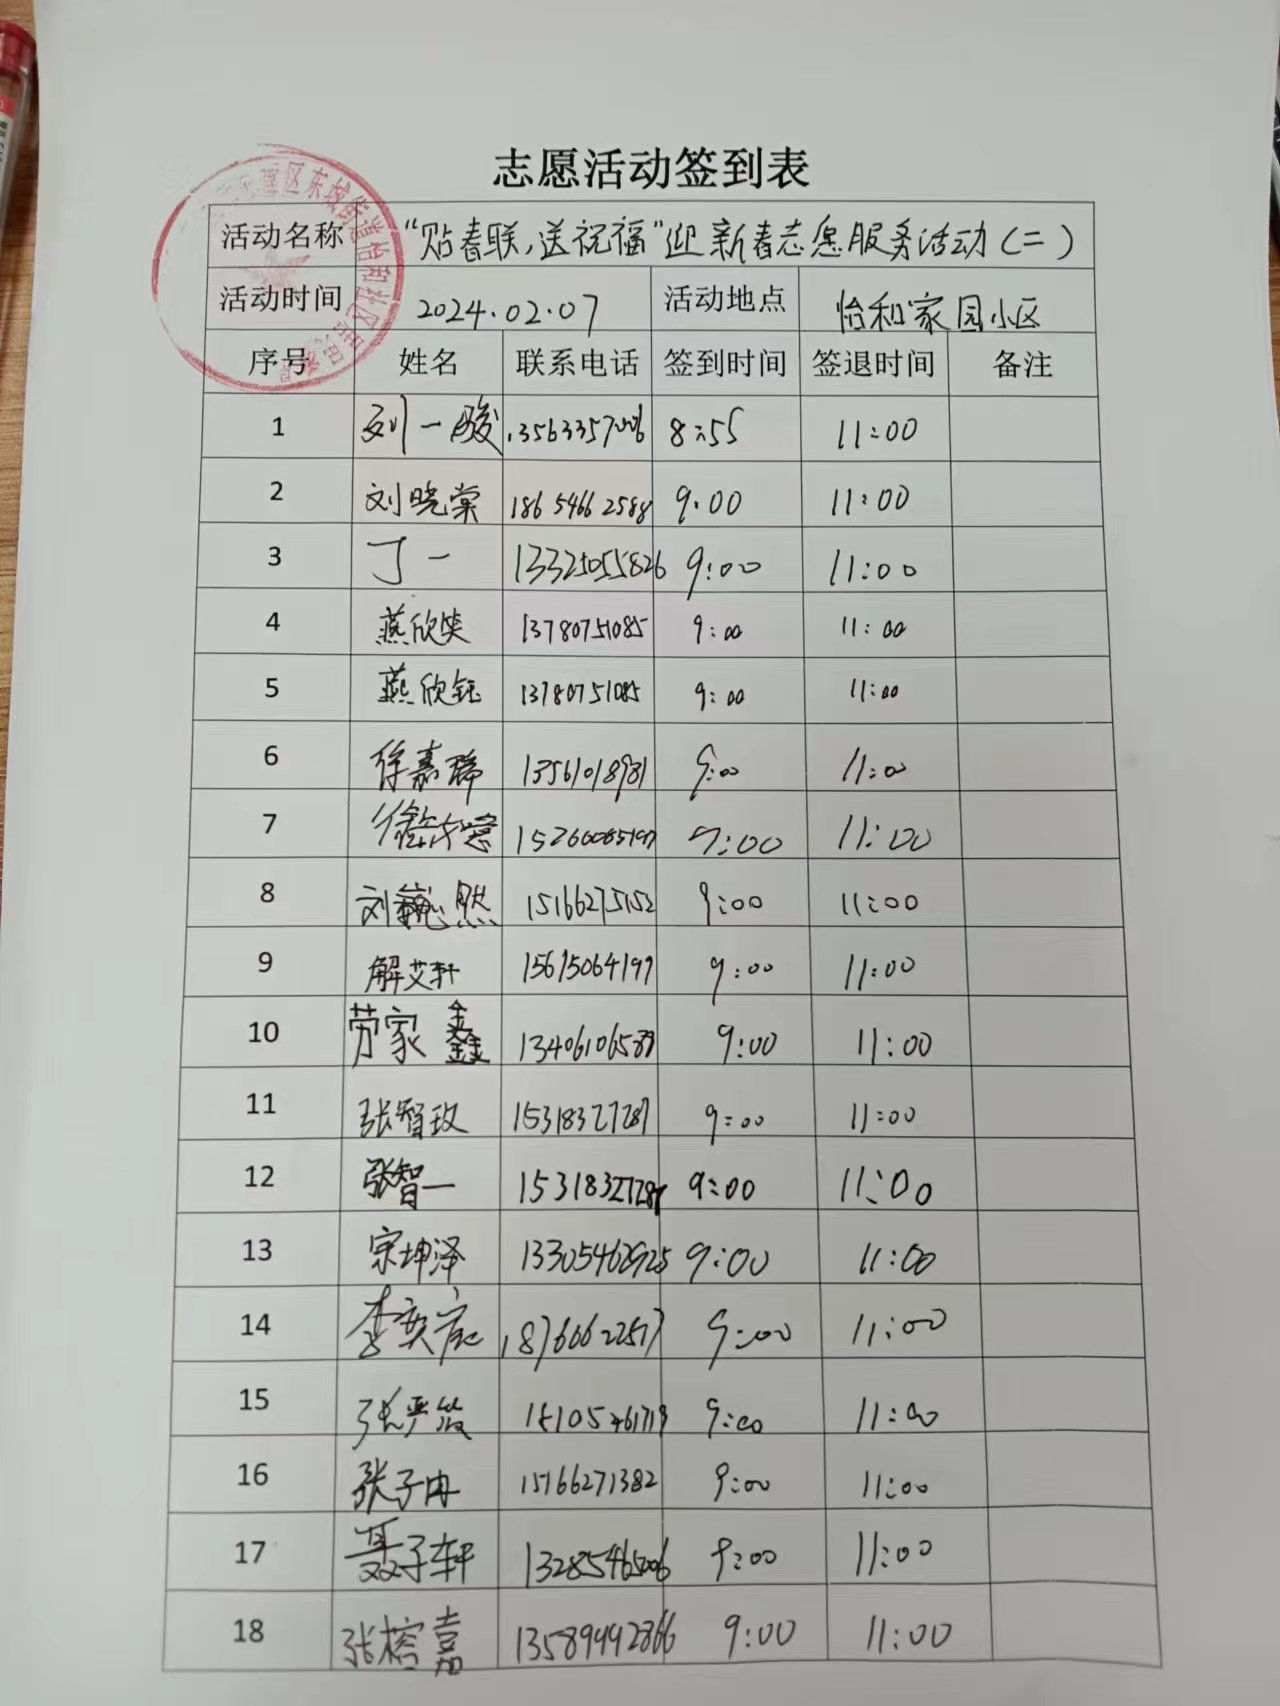 志愿活动签到表
活动名称 “贴春联,送祝福”迎新春志愿服务活动(二)
活动时间 2024.02.07 活动地点 怡和家园小区
区东城街道怡和社区居民委
序号 姓名 联系电话 签到时间 签退时间 备注
1 刘一骏 8:55 11:00
2 刘晓棠 18654662588 9:00 11:00
3 丁一 13325055826 9:00 11:00
4 燕欣 13780751085 9:00 11:00
5 燕欣钰 13780751085 9:00 11:00
6 徐嘉 13561018931 9:00 11:00
7 9:00 11:00
8 刘 然 15166275152 9:00 11:00
9 解艾轩 15615064197 9:00 11:00
10 劳家鑫 9:00 11:00
11 张智玫 15318327287 9:00 11:00
12 张智一 15318327287 9:00 11:00
13 宗坤泽 13305462925 9:00 11:00
14 李奕宸 18766622517 9:00 11:00
15 张严 9:00 11:00
16 张子冉 15166271382 9:00 11:00
17 聂子轩 13285465006 9:00 11:00
18 张榕嘉 13589992866 9:00 11:00